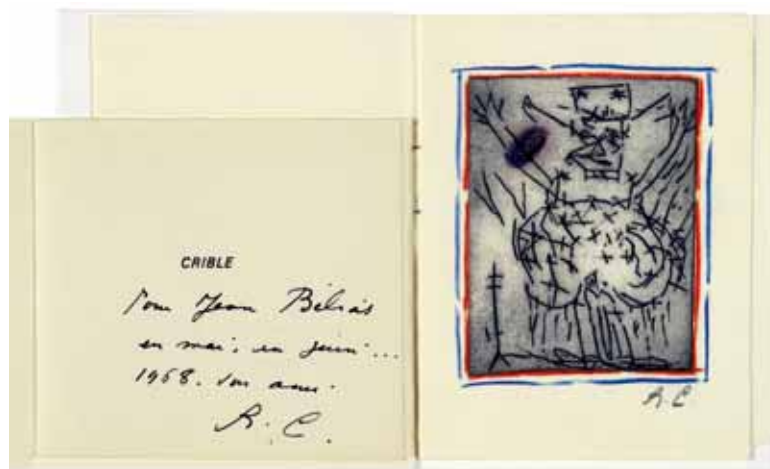 CRIBLE
Pour Jean Bélias
en mai, en juin...
1968. son ami.
R. C.
R C